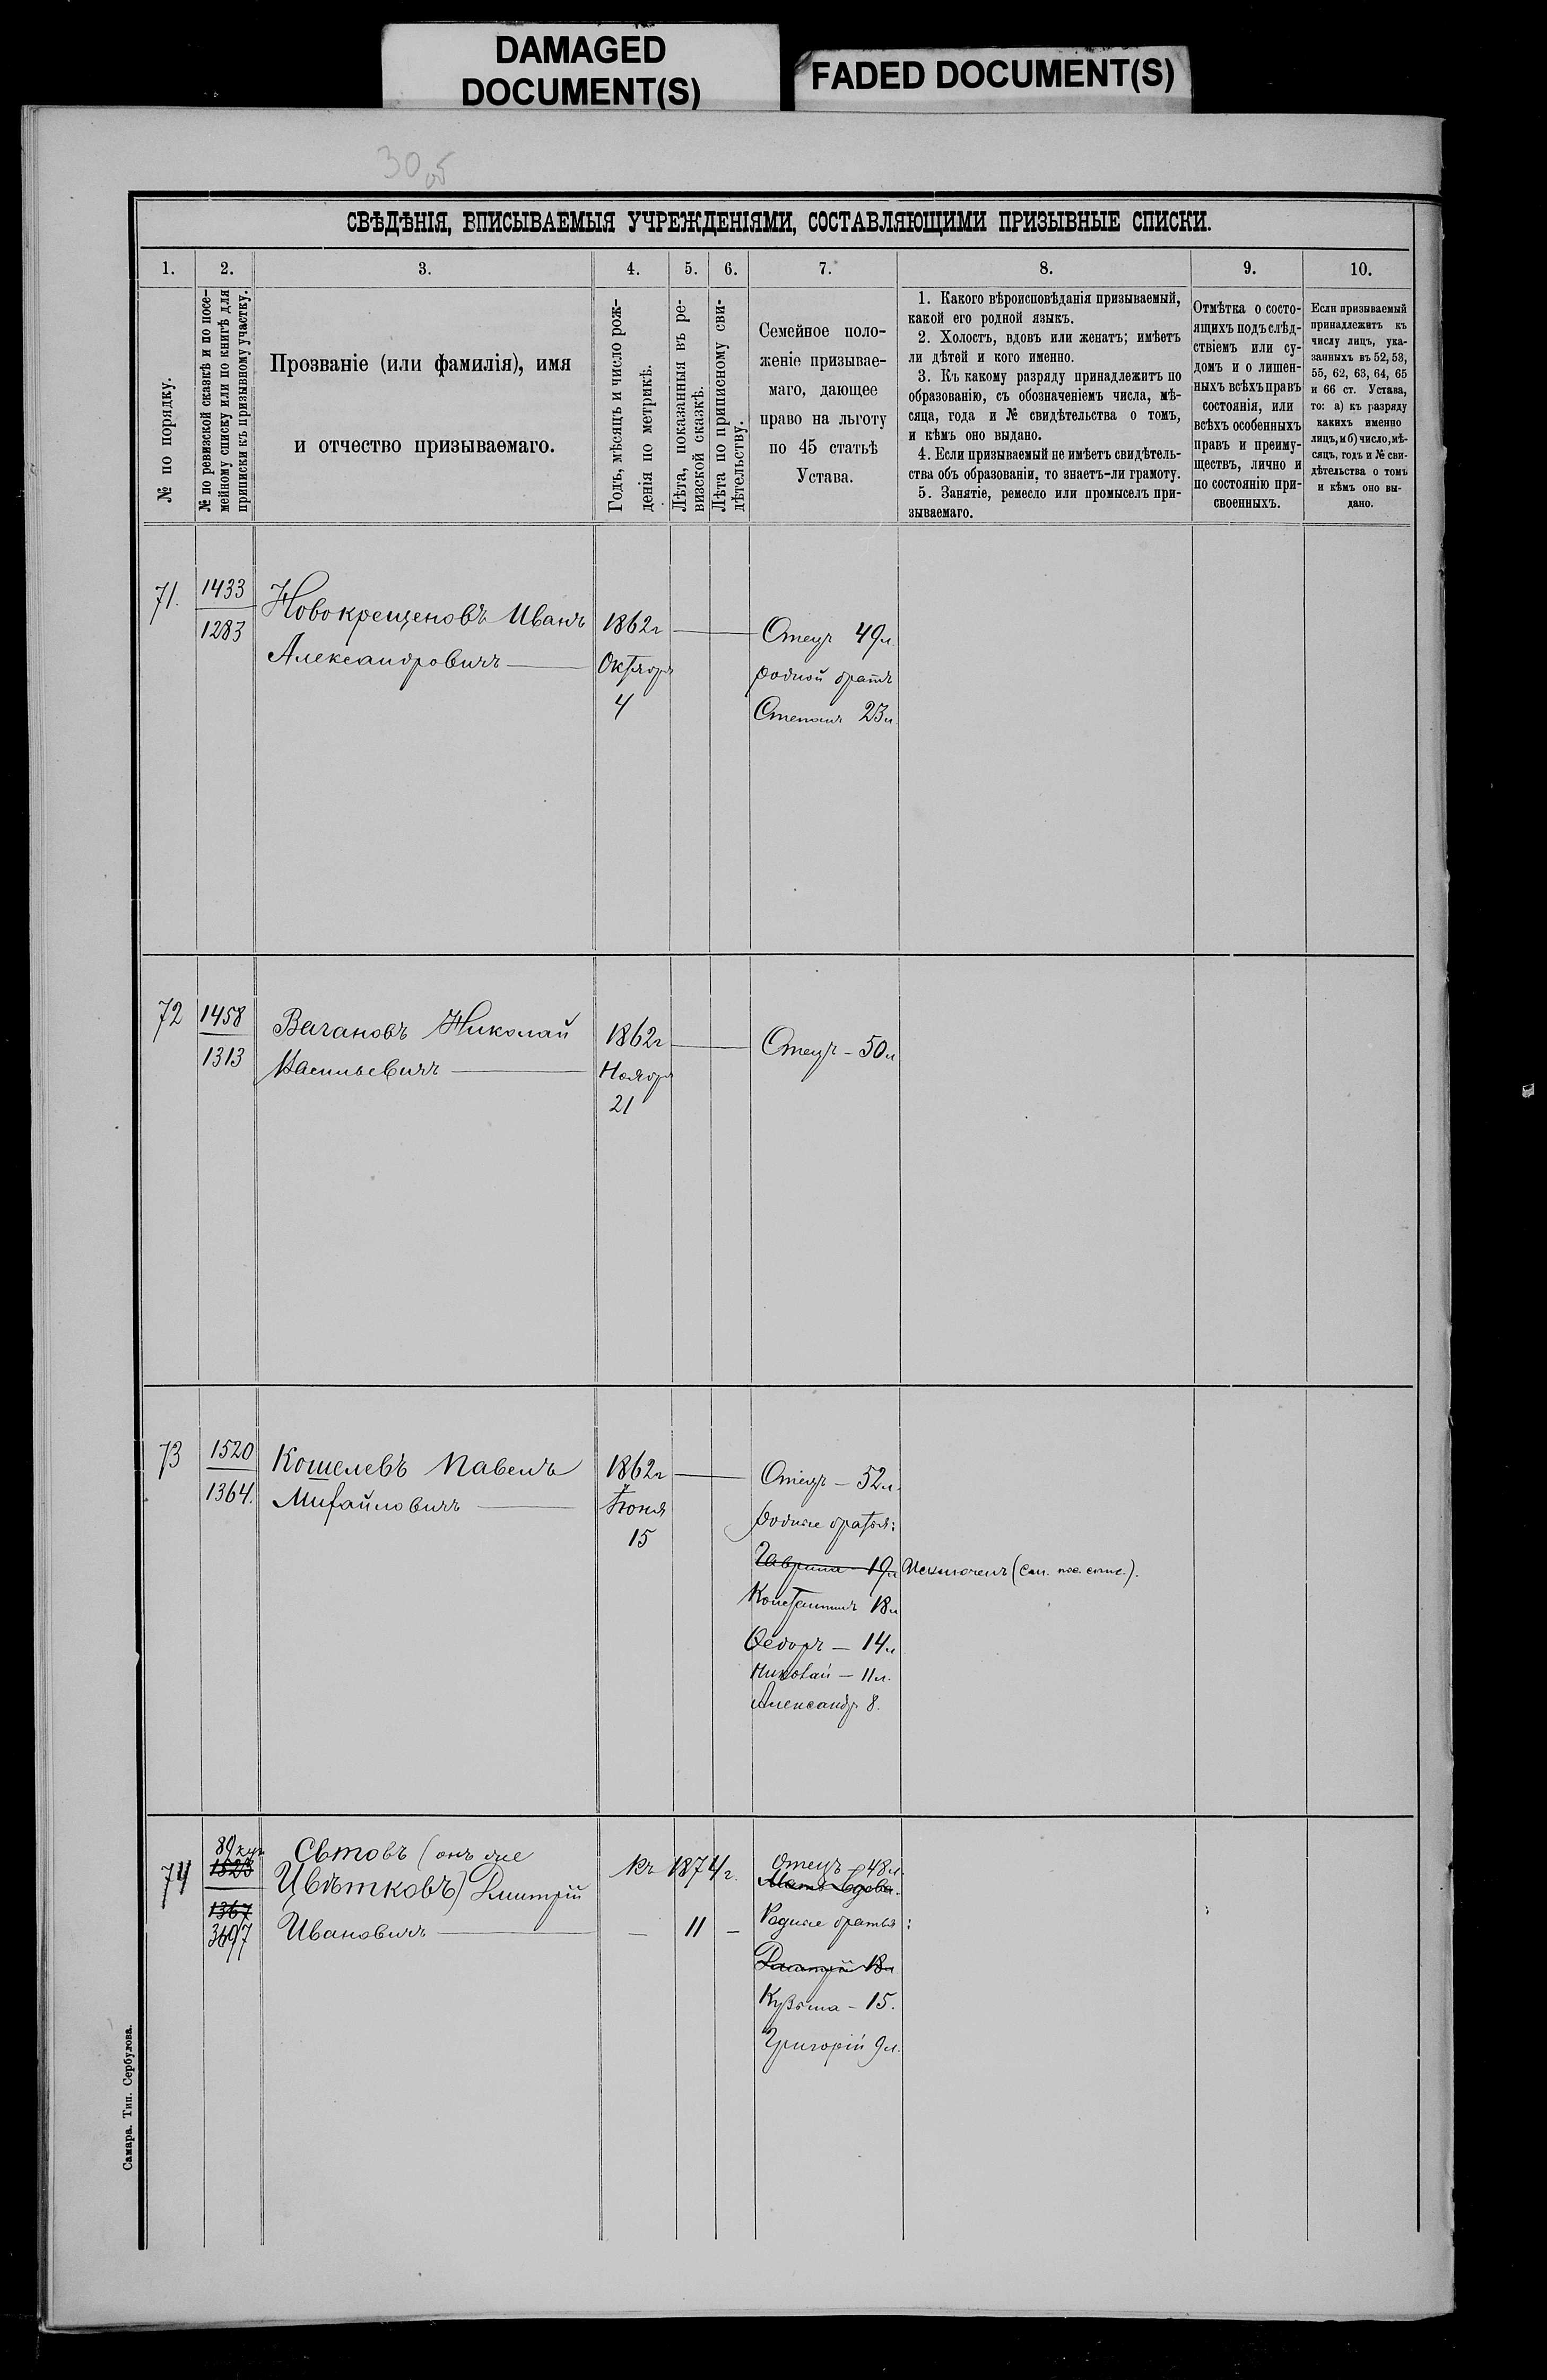 DAMAGED
DOCUMENT(S)
FADED DOCUMENT(S)
30 об
СВѢДѢНІЯ, ВПИСЫВАЕМЫЯ УЧРЕЖДЕНІЯМИ, СОСТАВЛЯЮЩИМИ ПРИЗЫВНЫЕ СПИСКИ.
1. 2. 3. 4. 5. 6. 7. 8. 9. 10.
№ по порядку.
№ по ревизской сказкѣ и по посе-
мейному списку или по книгѣ для
приписки къ призывному участку.
Прозваніе (или фамилія), имя
и отчество призываемаго.
Годъ, мѣсяцъ и число рож-
денія по метрикѣ.
Лѣта, показанныя въ ре-
визской сказкѣ.
Лѣта по приписному сви-
дѣтельству.
Семейное поло-
женіе призывае-
маго, дающее
право на льготу
по 45 статьѣ
Устава.
1. Какого вѣроисповѣданія призываемый,
какой его родной языкъ.
2. Холостъ, вдовъ или женатъ; имѣетъ
ли дѣтей и кого именно.
3. Къ какому разряду принадлежитъ по
образованію, съ обозначеніемъ числа, мѣ-
сяца, года и № свидѣтельства о томъ,
и кѣмъ оно выдано.
4. Если призываемый не имѣетъ свидѣтель-
ства объ образованіи, то знаетъ-ли грамоту.
5. Занятіе, ремесло или промыселъ при-
зываемаго.
Отмѣтка о состо-
ящихъ подъ слѣд-
ствіемъ или су-
домъ и о лишен-
ныхъ всѣхъ правъ
состоянія, или
всѣхъ особенныхъ
правъ и преиму-
ществъ, лично и
по состоянію при-
своенныхъ.
Если призываемый
принадлежитъ къ
числу лицъ, ука-
занныхъ въ 52, 53,
55, 62, 63, 64, 65
и 66 ст. Устава,
то: а) къ разряду
какихъ именно
лицъ, и б) число, мѣ-
сяцъ, годъ и № сви-
дѣтельства о томъ
и кѣмъ оно вы-
дано.
71.
1433
1283
Новокрещеновъ Иванъ
Александровичъ
1862г
Октября
4
Отецъ 49л.
родной братъ
Степанъ 23л.
72
1458
1313
Вагановъ Николай
Васильевичъ
1862г
Ноября
21
Отецъ - 50л
73
1520
1364.
Кошелевъ Павелъ
Михайловичъ
1862г
Іюня
15
Отецъ - 52л.
родные братья:
Гаврила 19л Исключенъ
Константинъ 18л
Ѳедоръ - 14л
Николай - 11л.
Александр. 8.
74
89
1523
1367
3697
Свтовъ (онъ же
Цвѣтковъ) Дмитрій
Ивановичъ
къ 1874г.
— 11 —
Отецъ - 48л.
Мать вдова.
Родные братья:
Дмитрій 18л
Кузьма - 15.
Григорій 9л.
Самара. Тип. Сербулова.